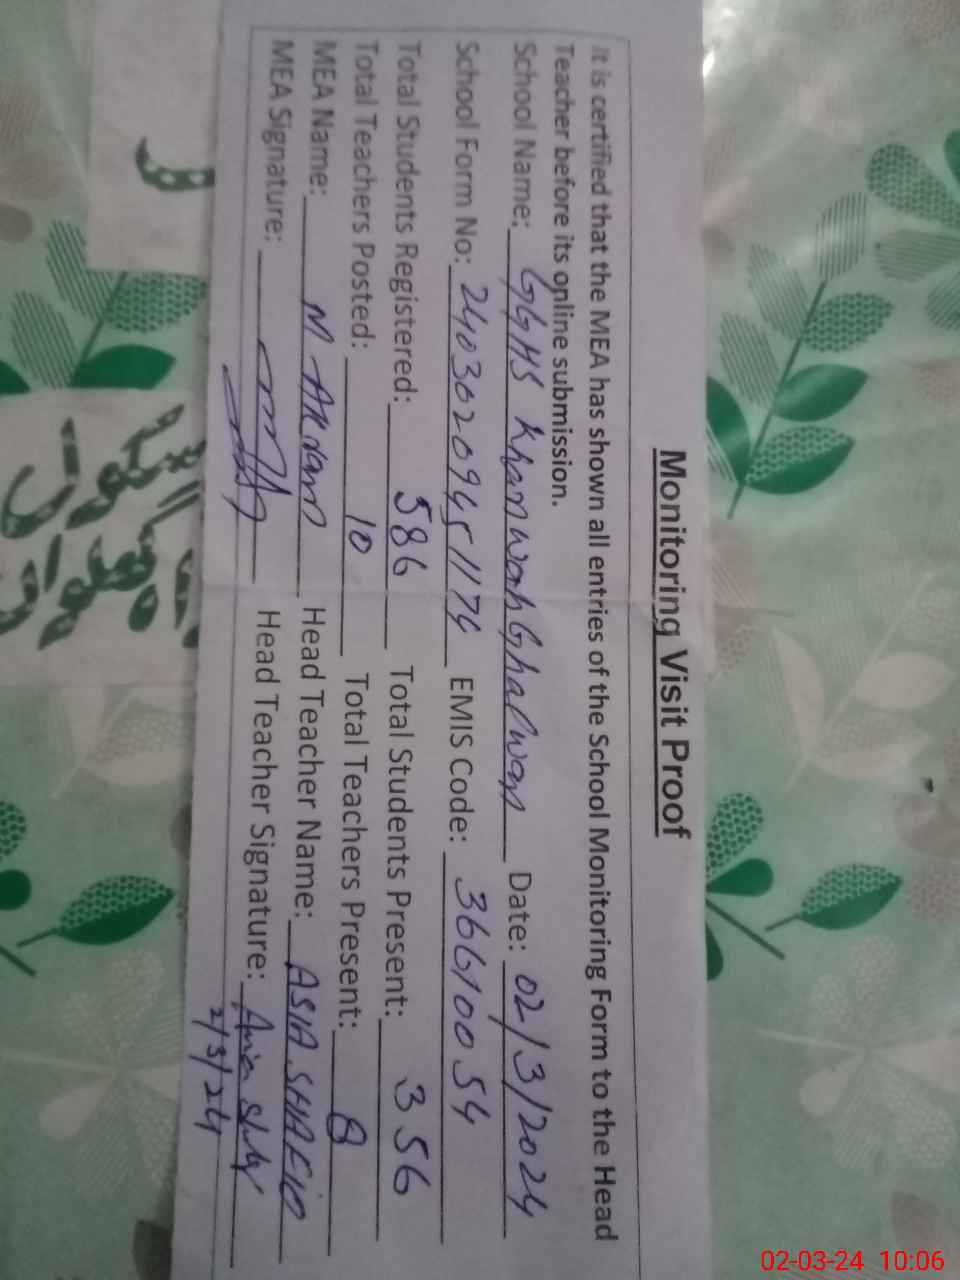 Monitoring Visit Proof
It is certified that the MEA has shown all entries of the School Monitoring Form to the Head
Teacher before its online submission.
School Name: GGHS Khanwah Gharwan Date: 02/3/2024
School Form No: 2403020945 1174 EMIS Code: 36610054
Total Students Registered: 586 Total Students Present: 356
Total Teachers Posted: 10 Total Teachers Present: 8
MEA Name: M Akram Head Teacher Name: ASIA SHAFIQ
MEA Signature: Head Teacher Signature: Asia
2/3/24
02-03-24 10:06